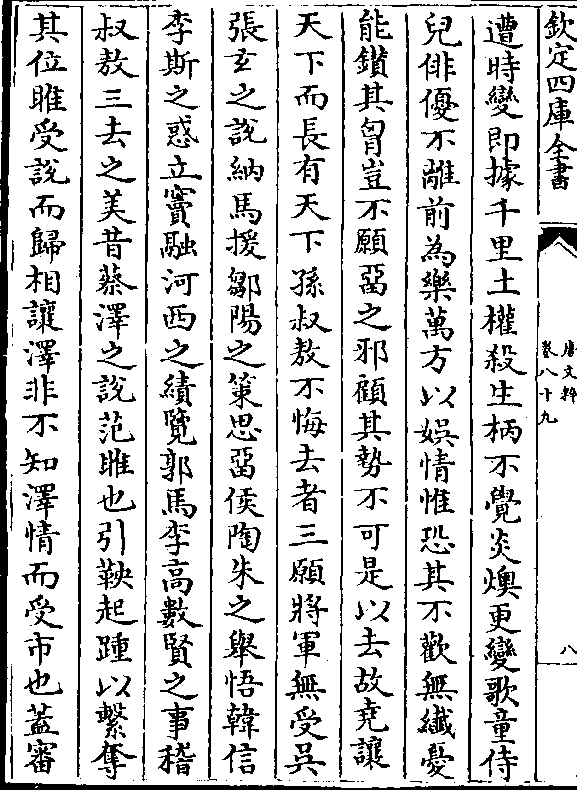 欽定四庫全書
唐文粹
卷八十九
八
遭時變即據千里土權殺生柄不覺炎燠更變歌童侍
兒俳優不離前為樂萬方以娯情惟恐其不歡無纎憂
能鑚其胷豈不願畱之邪顧其勢不可是以去故堯讓
天下而長有天下孫叔敖不悔去者三願將軍無受吳
張玄之說納馬援鄒陽之策思畱侯陶朱之舉悟韓信
李斯之惑立竇融河西之績覽郭馬李高數賢之事稽
叔敖三去之美昔蔡澤之說范雎也引鞅起踵以繫奪
其位雎受說而歸相讓澤非不知澤情而受市也葢審